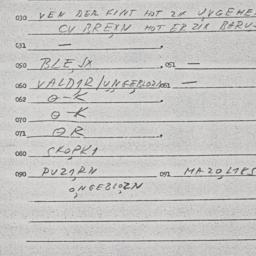 030 VEN DER FINT HOT ZIX
CU BREXN HOT ER ZIX
031 —
050 BLESX 051 —
060 VALD1R/UNGEBLOZN 061 —
062 Ə-K
070 Ə-K
071 ƏR
080 SKOPK1
090 PUZ1RN 091 MAZOL1KS
ONGEBLOZN